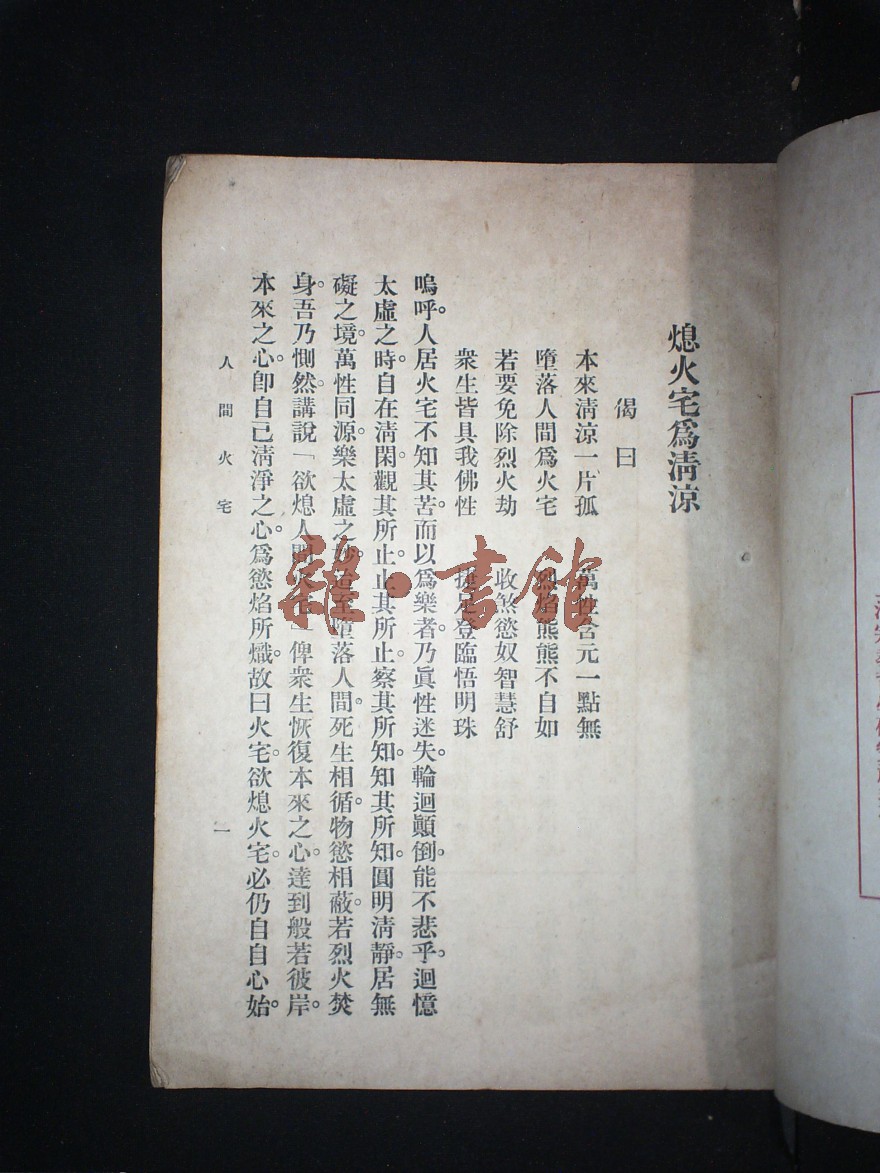 熄火宅爲淸涼
偈曰
本來淸涼一片孤　萬性含元一點無
墮落人間爲火宅　烈焰熊熊不自如
若要免除烈火劫　收煞慾奴智慧舒
衆生皆具我佛性　足登臨悟明珠
嗚呼。人居火宅不知其苦。而以爲樂者。乃眞性迷失。輪迴顚倒。能不悲乎。迴憶
太虛之時。自在淸閑。觀其所止。止其所止。察其所知。知其所知。圓明淸靜。居無
礙之境。萬性同源。樂太虛之妙。迨至墮落人間。死生相循。物慾相蔽。若烈火焚
身。吾乃惻然。講說「欲熄人間火宅」俾衆生恢復本來之心。達到般若彼岸。
本來之心。卽自己淸淨之心。爲慾焰所熾。故曰火宅。欲熄火宅。必仍自自心始。
人間火宅
一
雜·書館